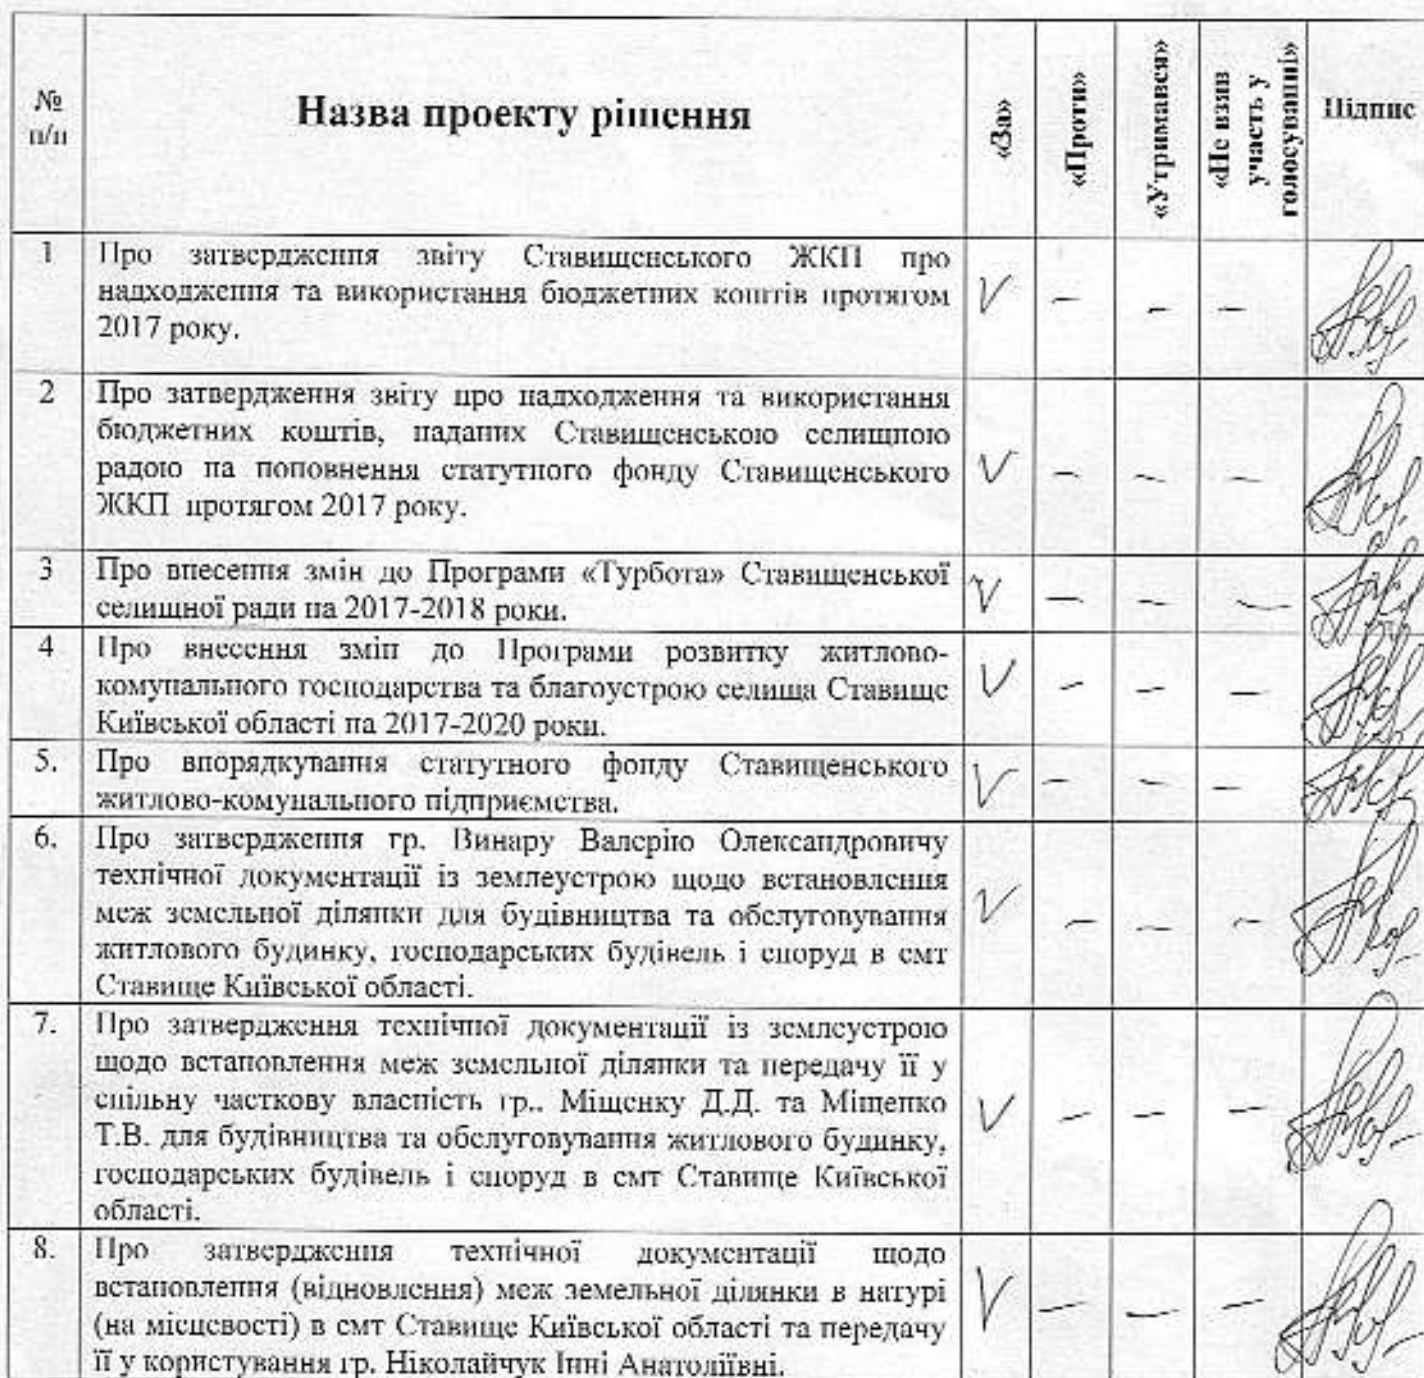 № п/п
Назва проекту рішення
«За»
«Проти»
«Утримався»
«Не взяв участь у голосуванні»
Підпис
1
Про затвердження звіту Ставищенського ЖКП про
надходження та використання бюджетних коштів протягом
2017 року.
V – – –
2
Про затвердження звіту про надходження та використання
бюджетних коштів, наданих Ставищенською селищною
радою на поповнення статутного фонду Ставищенського
ЖКП протягом 2017 року.
V – – –
3
Про внесення змін до Програми «Турбота» Ставищенської
селищної ради на 2017-2018 роки.
V – – –
4
Про внесення змін до Програми розвитку житлово-
комунального господарства та благоустрою селища Ставище
Київської області на 2017-2020 роки.
V – – –
5.
Про впорядкування статутного фонду Ставищенського
житлово-комунального підприємства.
V – – –
6.
Про затвердження гр. Винару Валерію Олександровичу
технічної документації із землеустрою щодо встановлення
меж земельної ділянки для будівництва та обслуговування
житлового будинку, господарських будівель і споруд в смт
Ставище Київської області.
V – – –
7.
Про затвердження технічної документації із землеустрою
щодо встановлення меж земельної ділянки та передачу її у
спільну часткову власність гр.. Міщенку Д.Д. та Міщенко
Т.В. для будівництва та обслуговування житлового будинку,
господарських будівель і споруд в смт Ставище Київської
області.
V – – –
8.
Про затвердження технічної документації щодо
встановлення (відновлення) меж земельної ділянки в натурі
(на місцевості) в смт Ставище Київської області та передачу
її у користування гр. Ніколайчук Інні Анатоліївні.
V – – –